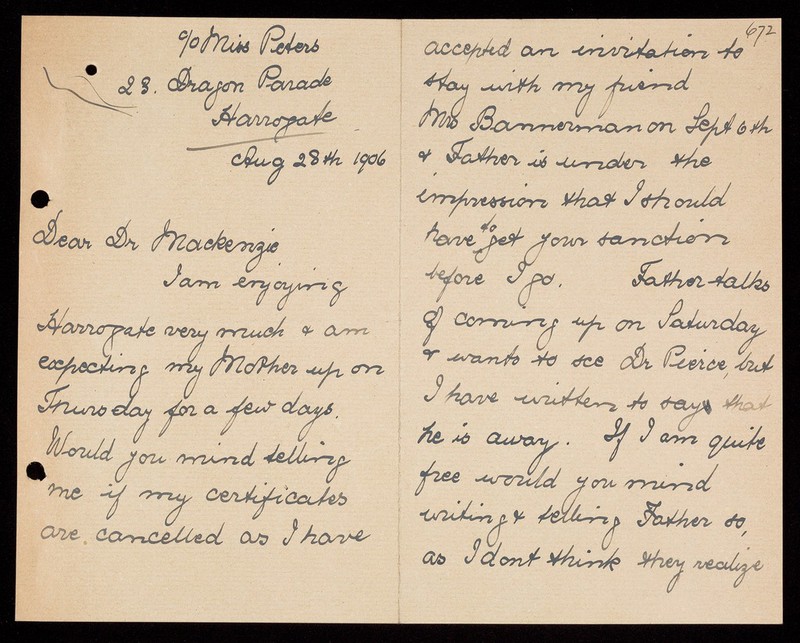 c/o Miss Peters
23. Dragon Parade
Harrogate
Aug 28th 1906
Dear Dr Mackenzie
I am enjoying
Harrogate very much & am
expecting my Mother up on
Thursday for a few days.
Would you mind telling
me if my certificates
are. cancelled as I have
672
accepted an invitation to
stay with my friend
Mrs Bannerman on Sept 6th
& Father is under the
impression that I should
have to get your sanction
before I go. Father talks
of coming up on Saturday
& wants to see Dr Pierce, but
I have written to say that
he is away. If I am quite
free would you mind
writing & telling Father so,
as I dont think they realize